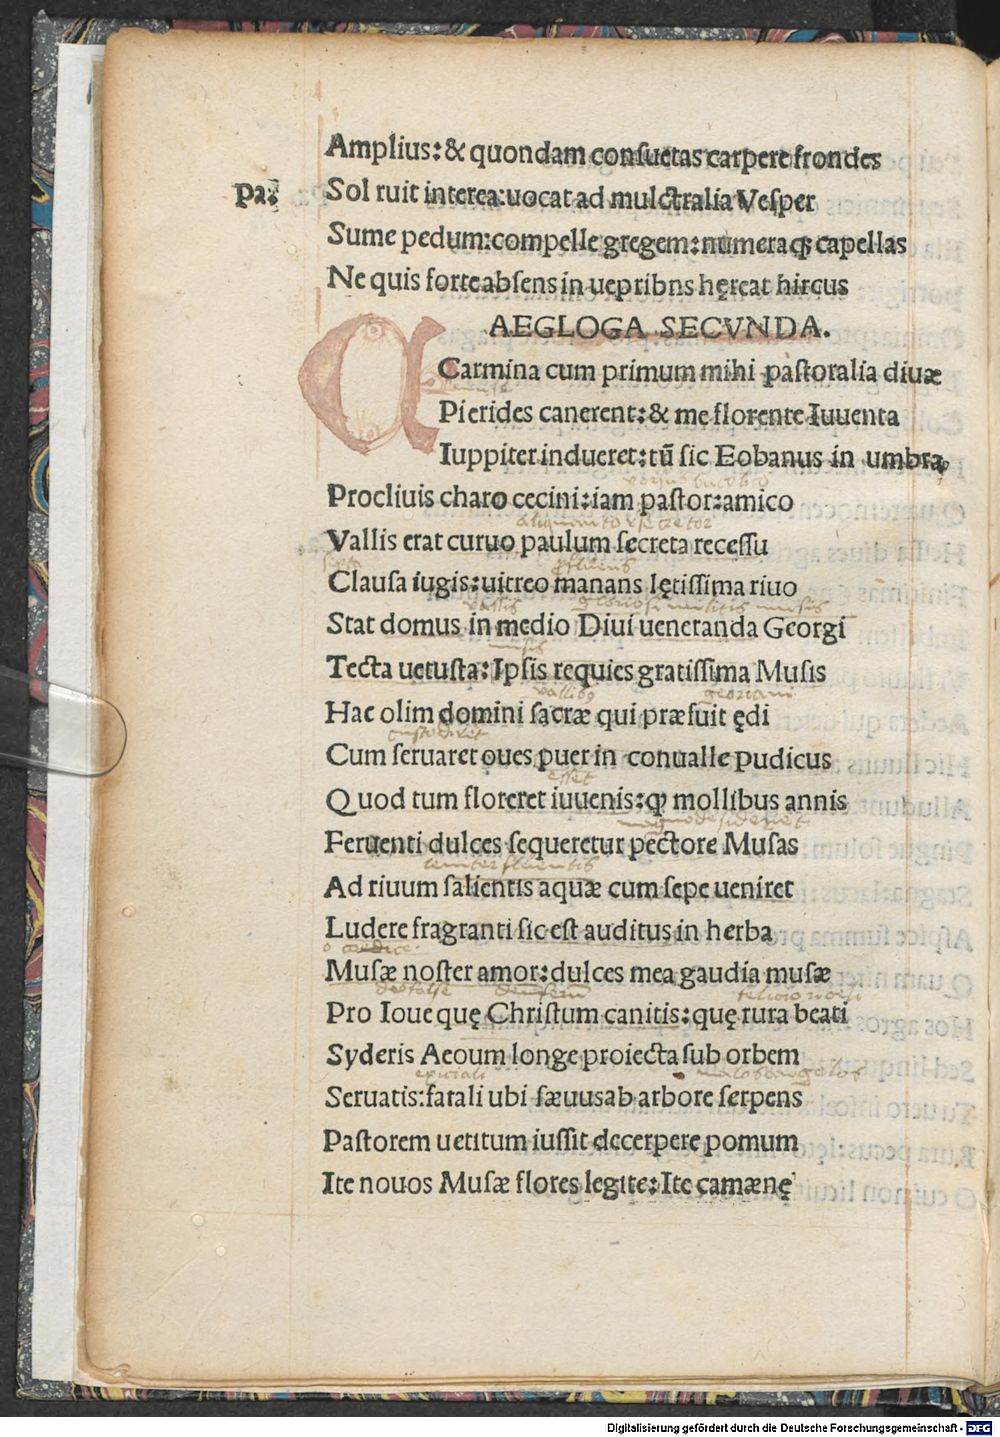 Amplius: & quondam consuetas carpere frondes
Pa: Sol ruit interea: uocat ad mulctralia Vesper
Sume pedum: compelle gregem: numeraqꝫ capellas
Ne quis forte absens in uepribns hęreat hircus
AEGLOGA SECVNDA.
Carmina cum primum mihi pastoralia diuæ
Pierides canerent: & me florente Iuuenta
Iuppiter indueret: tū sic Eobanus in umbra
Procliuis charo cecini: iam pastor: amico
Vallis erat curuo paulum secreta recessu
Clausa iugis: uitreo manans lętissima riuo
Stat domus in medio Diui ueneranda Georgi
Tecta uetusta: Ipsis requies gratissima Musis
Hac olim domini sacræ qui præfuit ędi
Cum seruaret oues puer in conualle pudicus
Quod tum floreret iuuenis: ꝙ mollibus annis
Feruenti dulces sequeretur pectore Musas
Ad riuum salientis aquæ cum sepe ueniret
Ludere fragranti sic est auditus in herba
Musæ noster amor: dulces mea gaudia musæ
Pro Ioue quę Christum canitis: quę rura beati
Syderis Aeoum longe proiecta sub orbem
Seruatis: fatali ubi sæuus ab arbore serpens
Pastorem uetitum iussit decerpere pomum
Ite nouos Musæ flores legite: Ite camænę
Digitalisierung gefördert durch die Deutsche Forschungsgemeinschaft - DFG